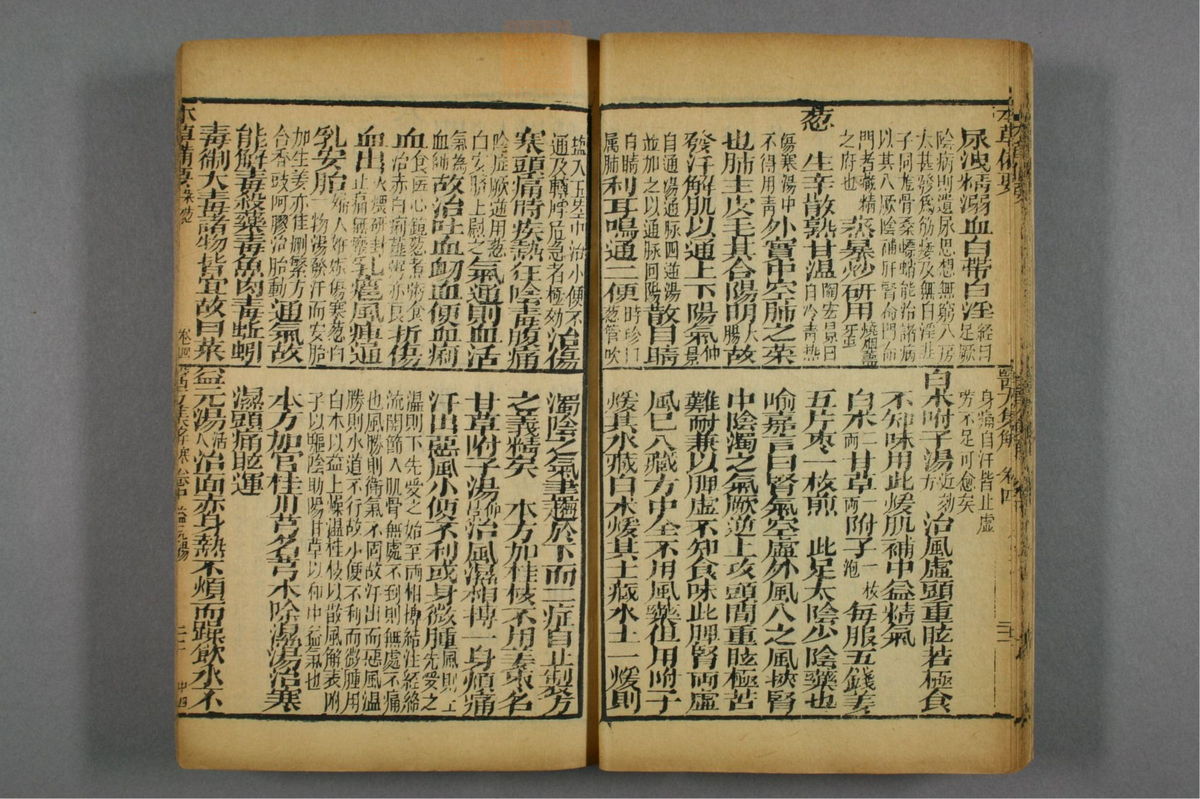 本草備要
尿洩精溺血白帶白淫經曰足厥
陰病則遺尿思想無窮入房
太甚發為筋痿及為白淫韭
子同龍骨桑螵蛸能治諸病
以其入厥陰補肝腎命門命
門者藏精
之府也 蒸暴炒研用
葱 生辛散熟甘温陶宏景曰白冷青熱
傷寒湯中不得用青 外實中空肺之菜
也肺主皮毛其合陽明大腸故
發汗解肌以通上下陽氣仲景
白通湯通脉四逆湯
並加之以通脉回陽 目睛
白睛屬肺 利耳鳴通二便時珍曰葱管吹
醫方集解 卷四
身痛自汗皆止虛
勞不足可愈矣
白朮附子湯近効方 治風虛頭重眩若極食
不知味用此煖肌補中益精氣
白朮二兩甘草一兩附子一枚炮 每服五錢姜
五片枣一枚煎 此足太陰少陰藥也
喻嘉言曰腎氣空虛外風入之風挾腎
中陰濁之氣厥逆上攻頭間重眩極苦
難耐兼以脾虛不知食味此脾腎兩虛
風已入藏方中全不用風藥但用附子
煖其水藏白朮煖其土藏水土一煖則
塩入玉莖中治小便不
通及轉脬危急者極効 治傷
寒頭痛時疾熱狂陰毒腹痛
陰症厥逆用葱
白安臍上熨之 氣通則血活
氣為血帥 故治吐血衂血便血痢
血食医心鏡葱煮粥食治赤白痢薤粥亦良 折傷
血出火煨研封止痛無瘢 乳癰風痺通
乳安胎婦人妊娠傷寒葱白一物湯發汗而安胎
加生姜亦佳刪繁方
合香豉阿膠治胎動 通氣故
能解毒殺藥毒魚肉毒蚯蚓
毒猘犬毒諸物皆宜故曰菜
本草備要
濁陰之氣盡趨於下而二症自止製方
之義精矣 本方加桂枝不用姜棗名
甘草附子湯仲景治風濕相搏一身煩痛
汗出惡風小便不利或身微腫風則上先受之
濕則下先受之始至兩相搏結注經絡
流関節入肌骨無處不到則無處不痛
也風勝則衛氣不固故汗出而惡風濕
勝則水道不行故小便不利而微腫用
白朮以益土燥濕桂枝以散風解表附
子以驅陰助陽甘草以和中益氣也
本方加官桂川芎名芎朮除濕湯治寒
濕頭痛眩運
益元湯活人治面赤身熱不煩而躁飲水不
益元湯